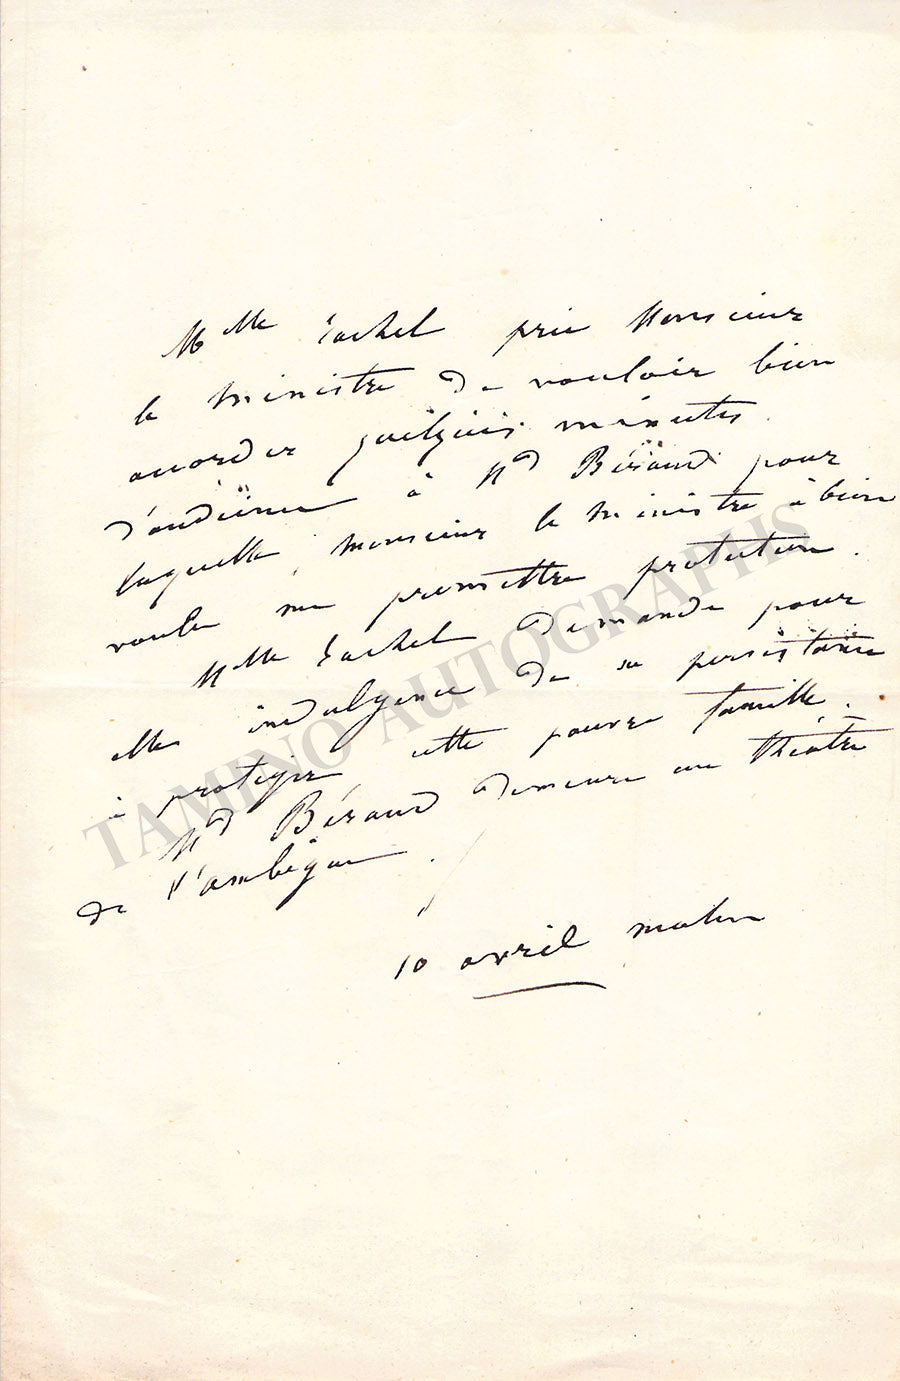 Mlle rachel prie Monsieur
le ministre de vouloir bien
accorder quelques minutes
d'audience à Md Béraud pour
laquelle monsieur le ministre à bien
voulu me promettre protection.
Mlle rachel demande pour
elle indulgence de sa persistance
à protéger cette pauvre famille.
Md Béraud demeure au théâtre
de l'ambigu.
10 avril matin
TAMINO AUTOGRAPHS